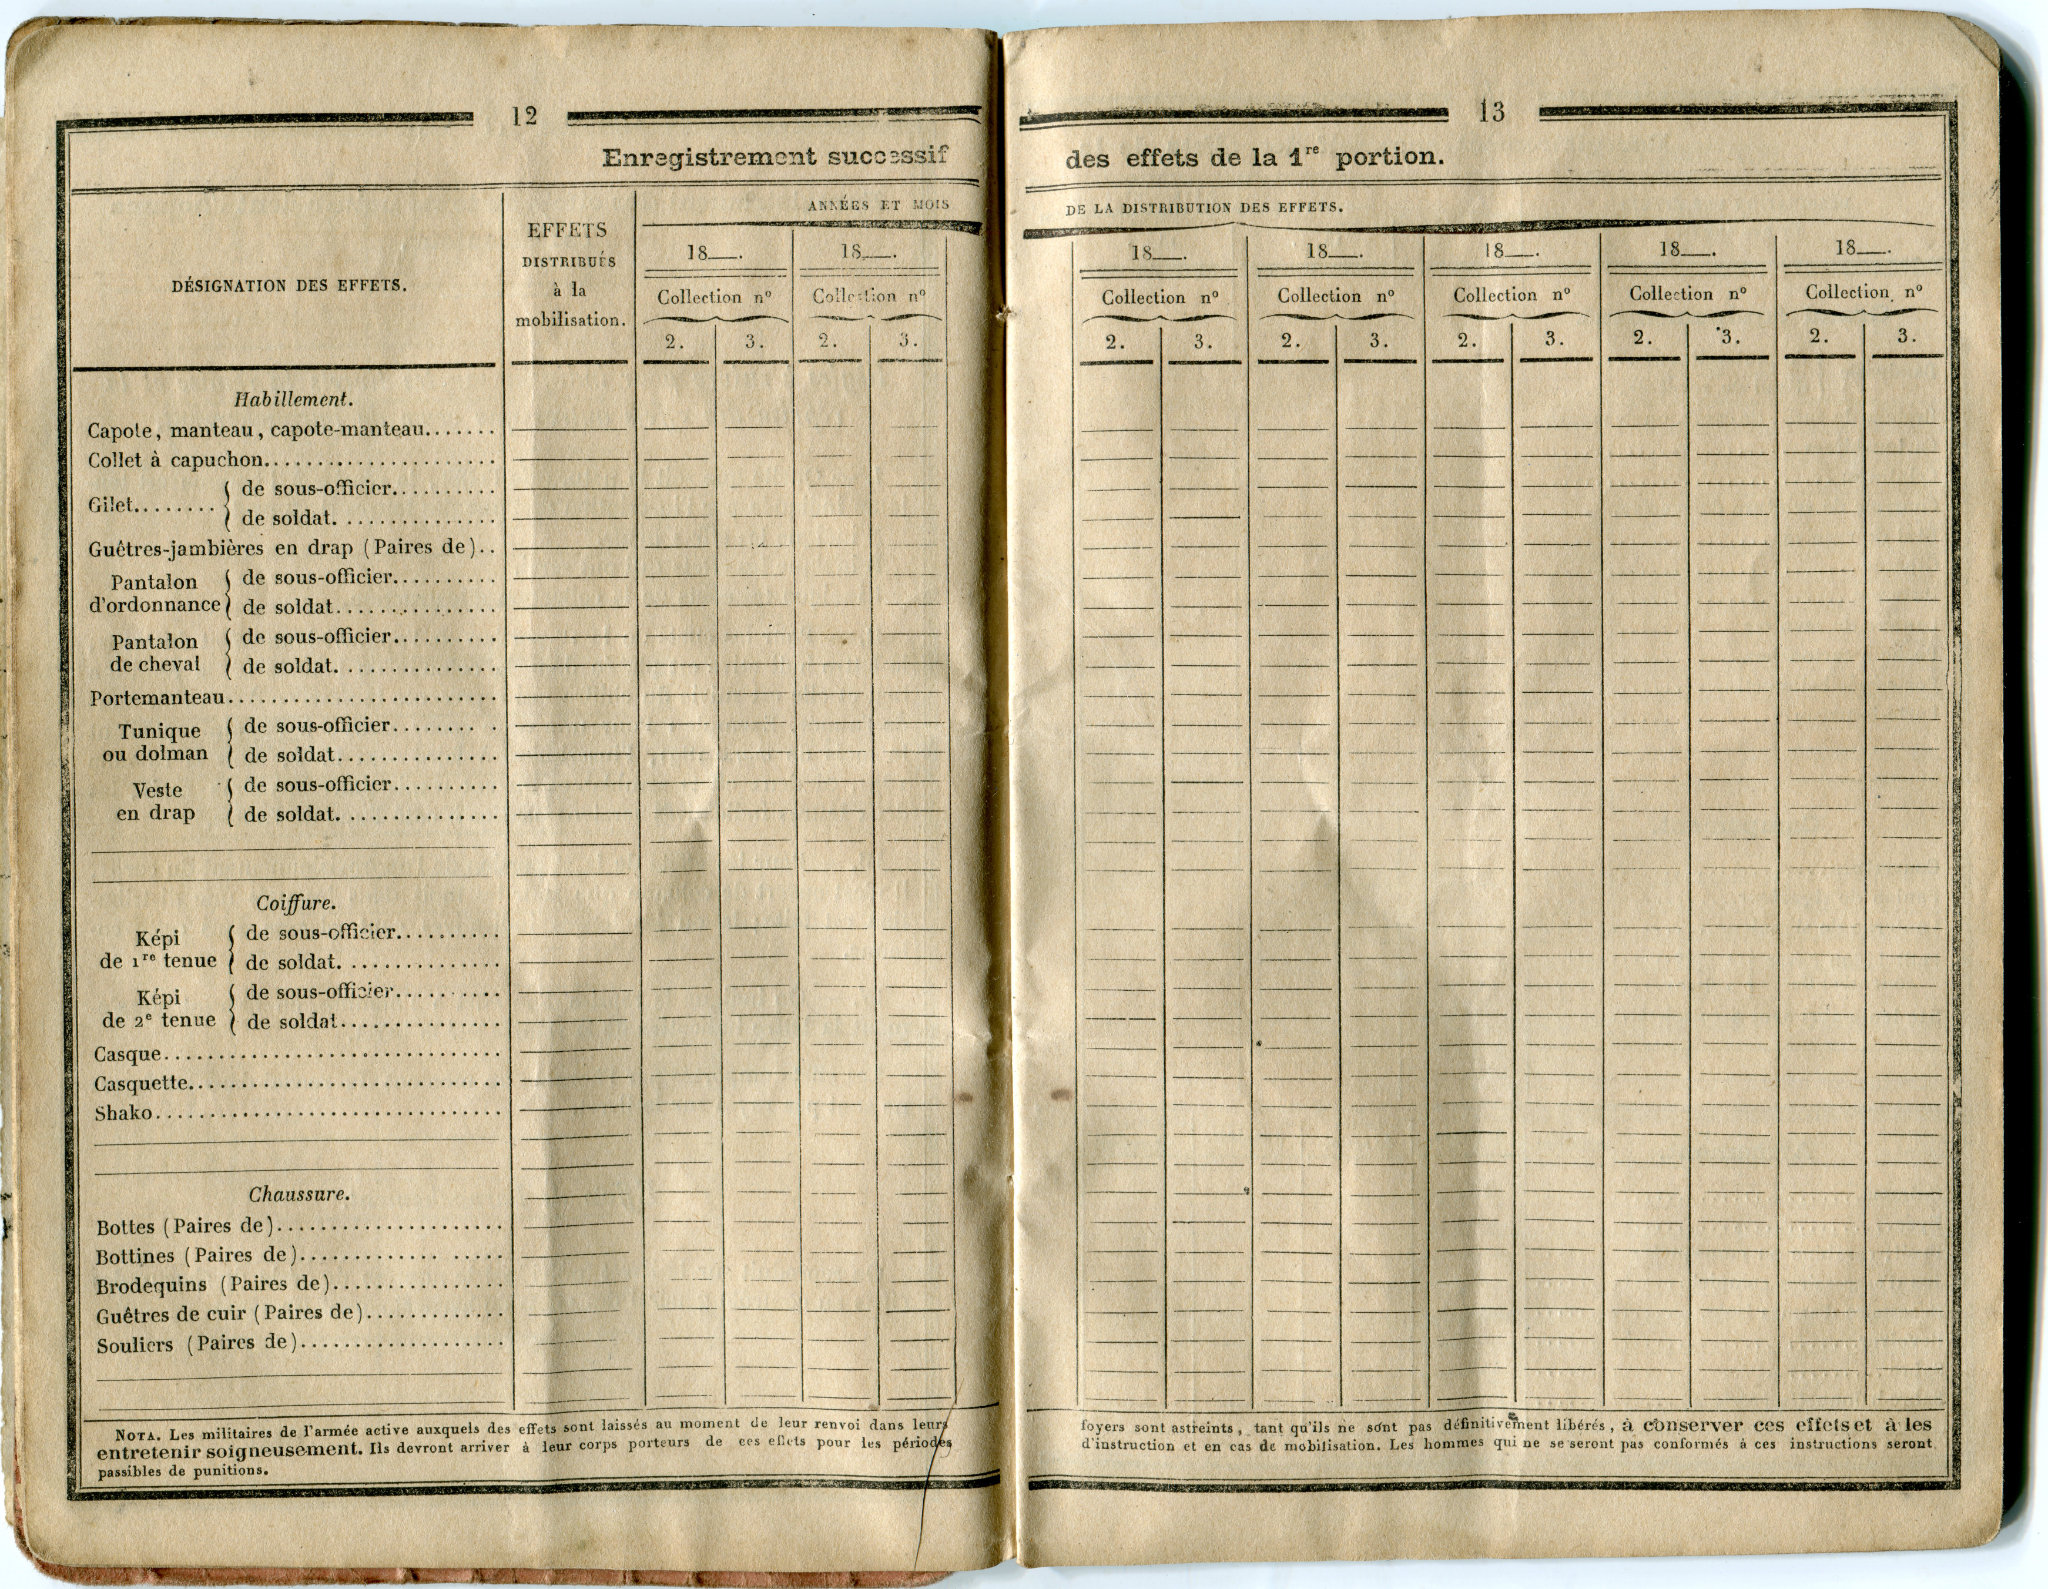 12
Enregistrement successif
DÉSIGNATION DES EFFETS.
EFFETS
DISTRIBUÉS
à la
mobilisation.
ANNÉES ET MOIS
18__. 18__.
Collection nº Collection nº
2. 3. 2. 3.
Habillement.
Capote, manteau, capote-manteau.......
Collet à capuchon......................
Gilet........ { de sous-officier..........
de soldat. ..............
Guêtres-jambières en drap (Paires de)..
Pantalon d'ordonnance { de sous-officier..........
de soldat...............
Pantalon de cheval { de sous-officier..........
de soldat. ..............
Portemanteau.........................
Tunique ou dolman { de sous-officier........ .
de soldat...............
Veste en drap { de sous-officier..........
de soldat. ..............
Coiffure.
Képi de 1re tenue { de sous-officier..........
de soldat. ..............
Képi de 2e tenue { de sous-officier..........
de soldat...............
Casque...............................
Casquette.............................
Shako................................
Chaussure.
Bottes (Paires de).....................
Bottines (Paires de)............. .....
Brodequins (Paires de)................
Guêtres de cuir (Paires de).............
Souliers (Paires de)...................
NOTA. Les militaires de l'armée active auxquels des effets sont laissés au moment de leur renvoi dans leurs
entretenir soigneusement. Ils devront arriver à leur corps porteurs de ces effets pour les périodes
passibles de punitions.
13
des effets de la 1re portion.
DE LA DISTRIBUTION DES EFFETS.
18__. 18__. 18__. 18__. 18__.
Collection nº Collection nº Collection nº Collection nº Collection nº
2. 3. 2. 3. 2. 3. 2. 3. 2. 3.
foyers sont astreints, tant qu'ils ne sont pas définitivement libérés, à conserver ces effets et à les
d'instruction et en cas de mobilisation. Les hommes qui ne se seront pas conformés à ces instructions seront